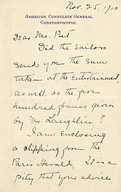 Nov. 25, 1910
AMERICAN CONSULATE GENERAL,
CONSTANTINOPLE.
Dear Mr. Peet
Did the sailors
send you the sum
taken at the Entertainment
as well as the five
hundred francs given
by Mr. Laughlin?
I am enclosing
a clipping from the
Paris Herald, it is a
pity that you advise